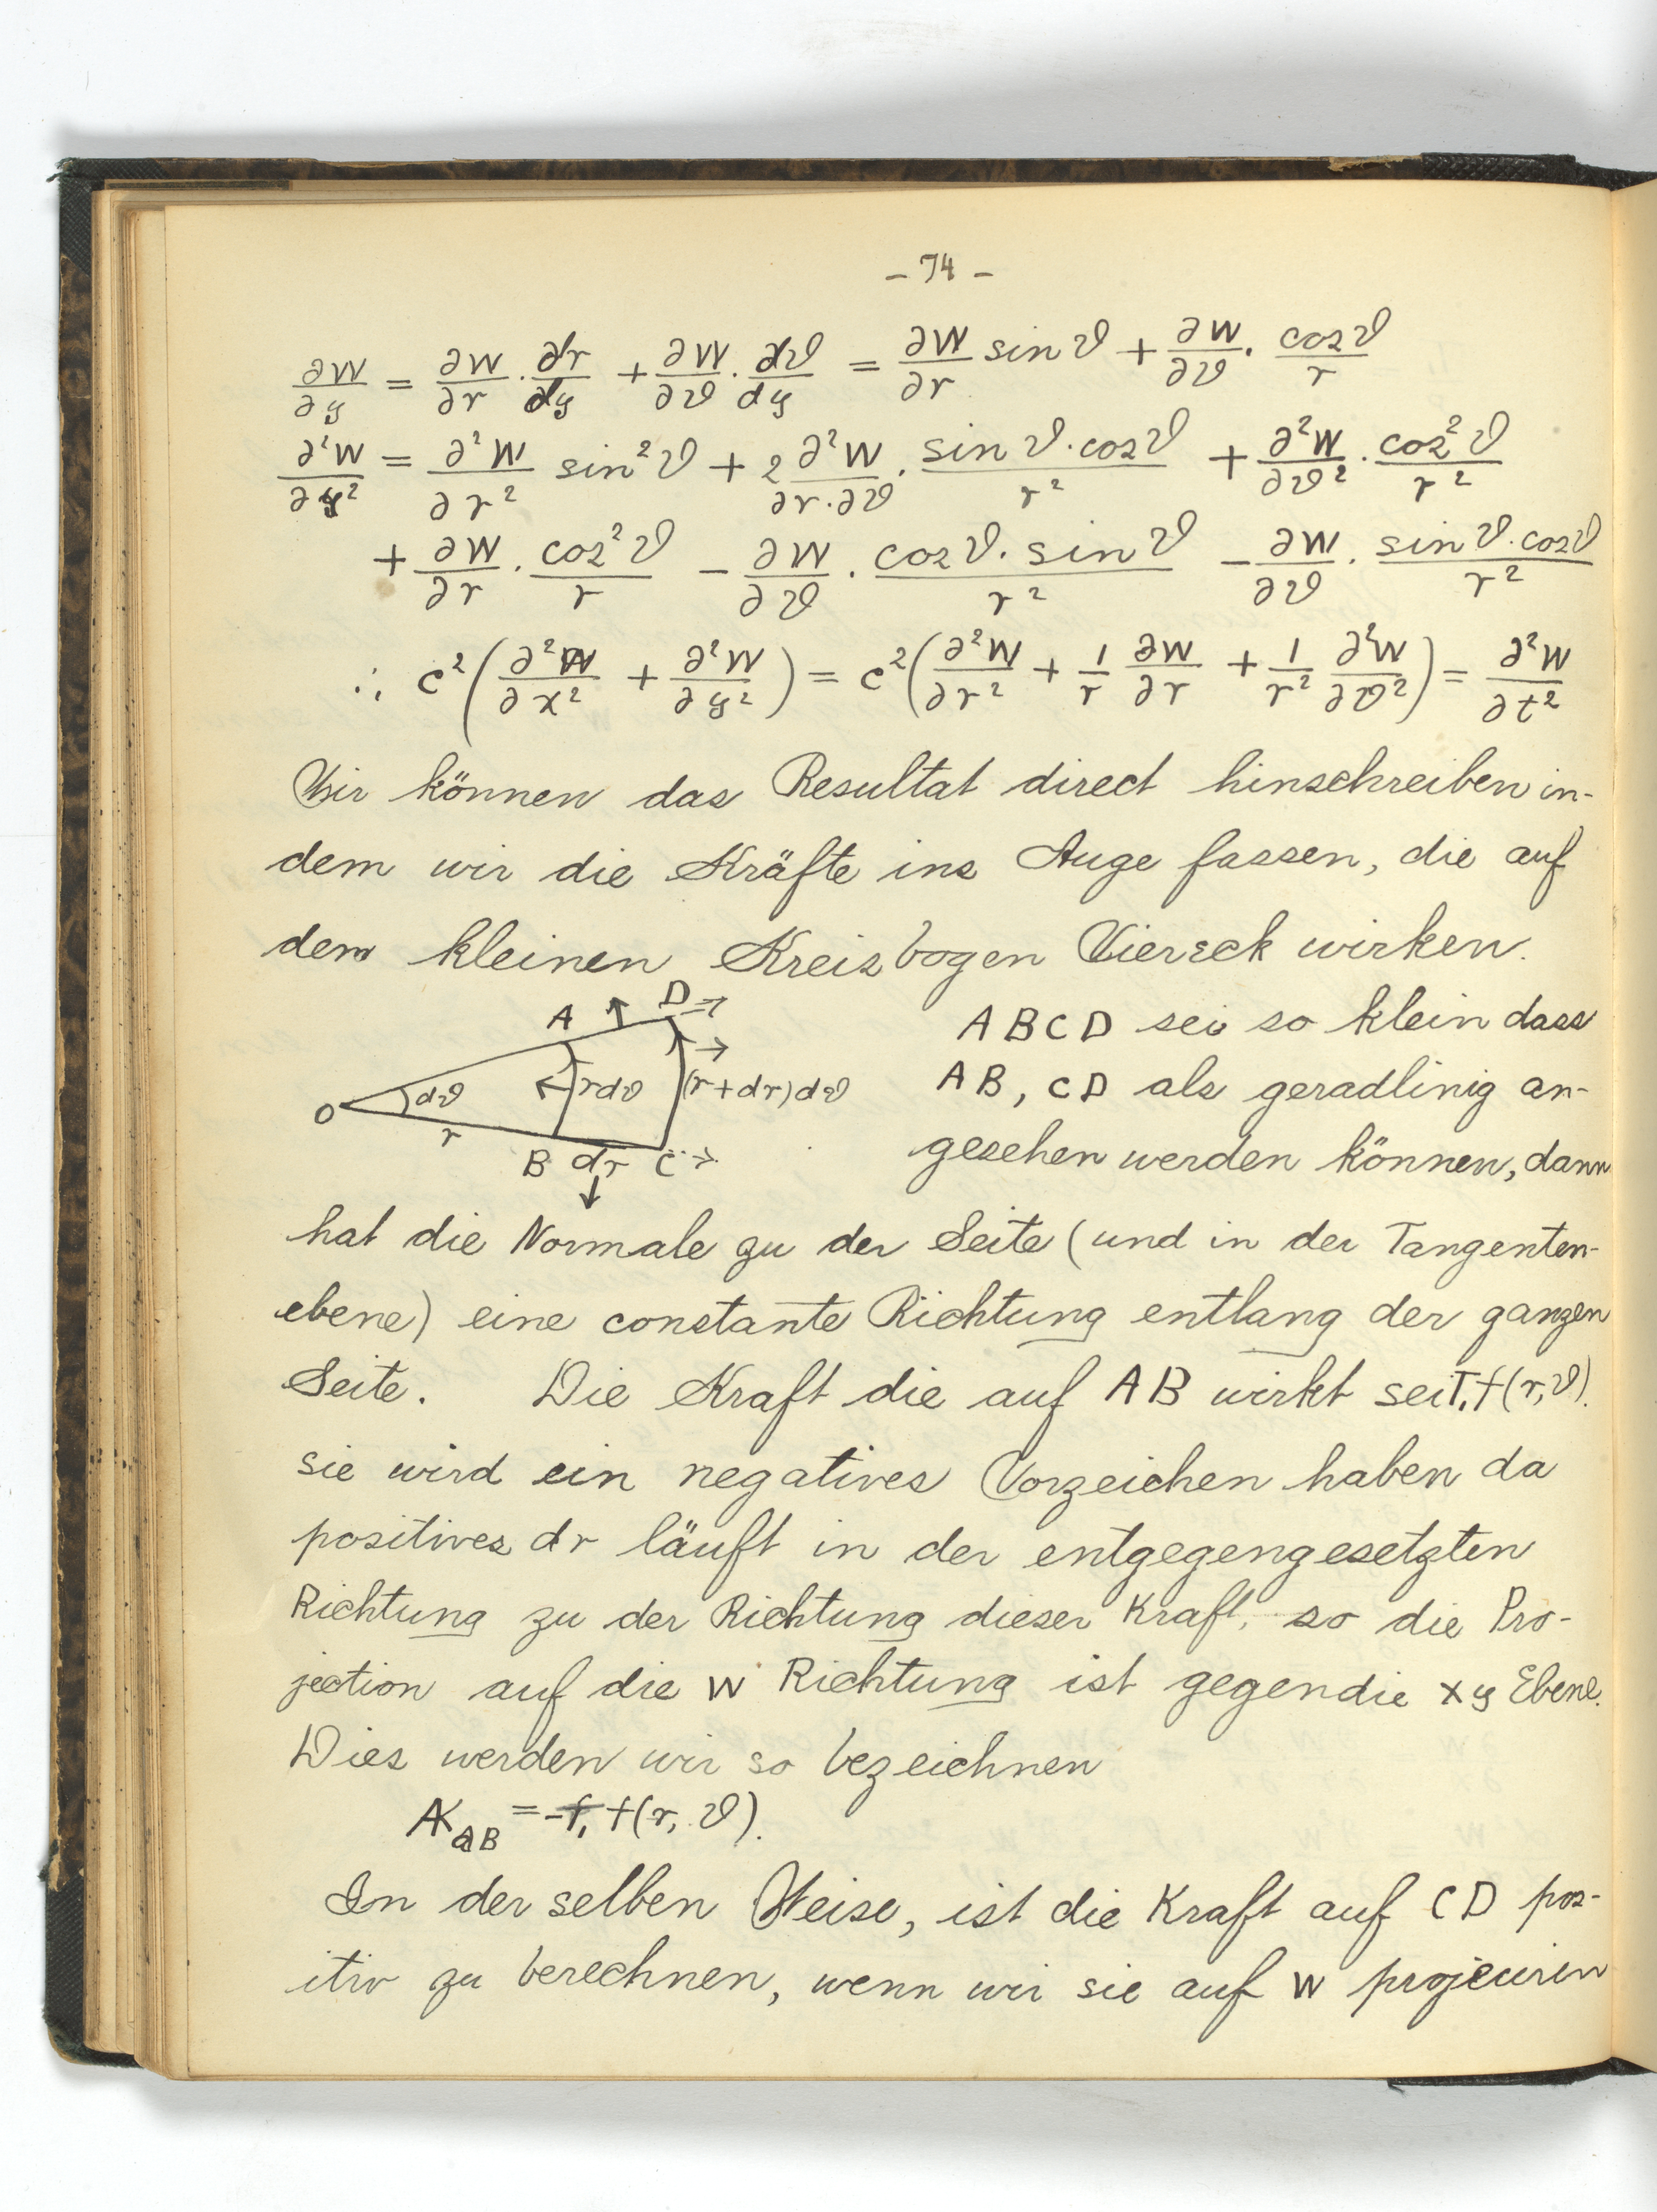 - 74 -
∂W/∂y = ∂W/∂r · dr/dy + ∂W/∂ϑ · dϑ/dy = ∂W/∂r sin ϑ + ∂W/∂ϑ · cos ϑ/r
∂²W/∂y² = ∂²W/∂r² sin²ϑ + 2 ∂²W/∂r·∂ϑ · sin ϑ · cos ϑ/r² + ∂²W/∂ϑ² · cos²ϑ/r²
+ ∂W/∂r · cos²ϑ/r - ∂W/∂ϑ · cos ϑ · sin ϑ/r² - ∂W/∂ϑ · sin ϑ · cos ϑ/r²
∴ c² (∂²W/∂x² + ∂²W/∂y²) = c² (∂²W/∂r² + 1/r ∂W/∂r + 1/r² ∂²W/∂ϑ²) = ∂²W/∂t²
Wir können das Resultat direct hinschreiben in-
dem wir die Kräfte ins Auge fassen, die auf
dem kleinen Kreisbogen Viereck wirken.
A D
O dϑ rdϑ (r+dr)dϑ
r
B dr C
ABCD sei so klein dass
AB, CD als geradlinig an-
gesehen werden können, dann
hat die Normale zu der Seite (und in der Tangenten-
ebene) eine constante Richtung entlang der ganzen
Seite. Die Kraft die auf AB wirkt sei T₁ f(r,ϑ).
sie wird ein negatives Vorzeichen haben da
positives dr läuft in der entgegengesetzten
Richtung zu der Richtung dieser Kraft, so die Pro-
jection auf die W Richtung ist gegen die xy Ebene.
Dies werden wir so bezeichnen
K_AB = - f(r, ϑ).
In der selben Weise, ist die Kraft auf CD pos-
itiv zu berechnen, wenn wir sie auf W projeciren